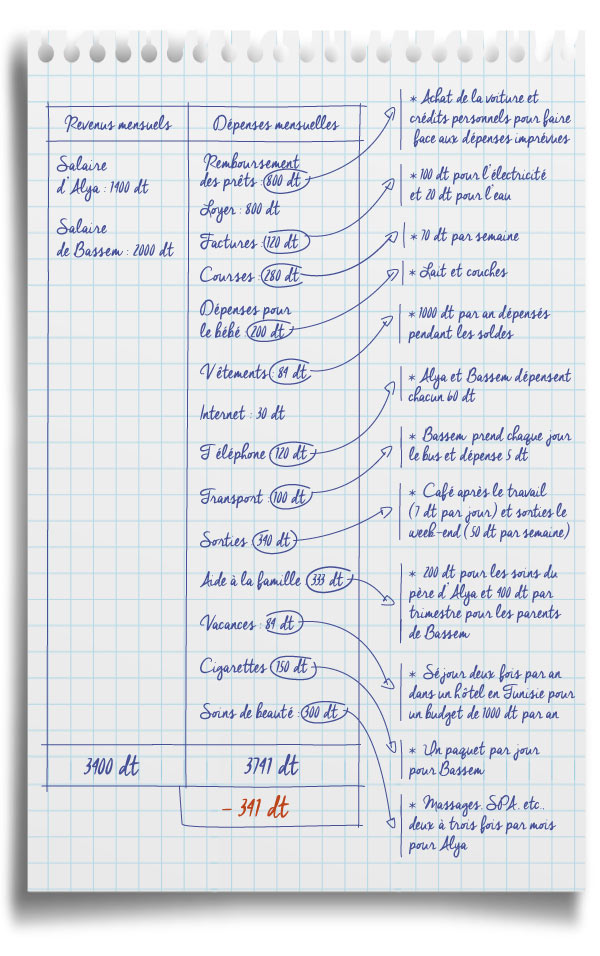 Revenus mensuels
Salaire
d'Alya : 1400 dt
Salaire
de Bassem : 2000 dt
3400 dt
Dépenses mensuelles
Remboursement
des prêts : 800 dt
Loyer : 800 dt
Factures : 120 dt
Courses : 280 dt
Dépenses pour
le bébé : 200 dt
Vêtements : 84 dt
Internet : 30 dt
Téléphone : 120 dt
Transport : 100 dt
Sorties : 340 dt
Aide à la famille : 333 dt
Vacances : 84 dt
Cigarettes : 150 dt
Soins de beauté : 300 dt
3741 dt
- 341 dt
* Achat de la voiture et
crédits personnels pour faire
face aux dépenses imprévues
* 100 dt pour l'électricité
et 20 dt pour l'eau
* 70 dt par semaine
* Lait et couches
* 1000 dt par an dépensés
pendant les soldes
* Alya et Bassem dépensent
chacun 60 dt
* Bassem prend chaque jour
le bus et dépense 5 dt
* Café après le travail
(7 dt par jour) et sorties le
week-end (50 dt par semaine)
* 200 dt pour les soins du
père d'Alya et 400 dt par
trimestre pour les parents
de Bassem
* Séjour deux fois par an
dans un hôtel en Tunisie pour
un budget de 1000 dt par an
* Un paquet par jour
pour Bassem
* Massages, SPA, etc..
deux à trois fois par mois
pour Alya